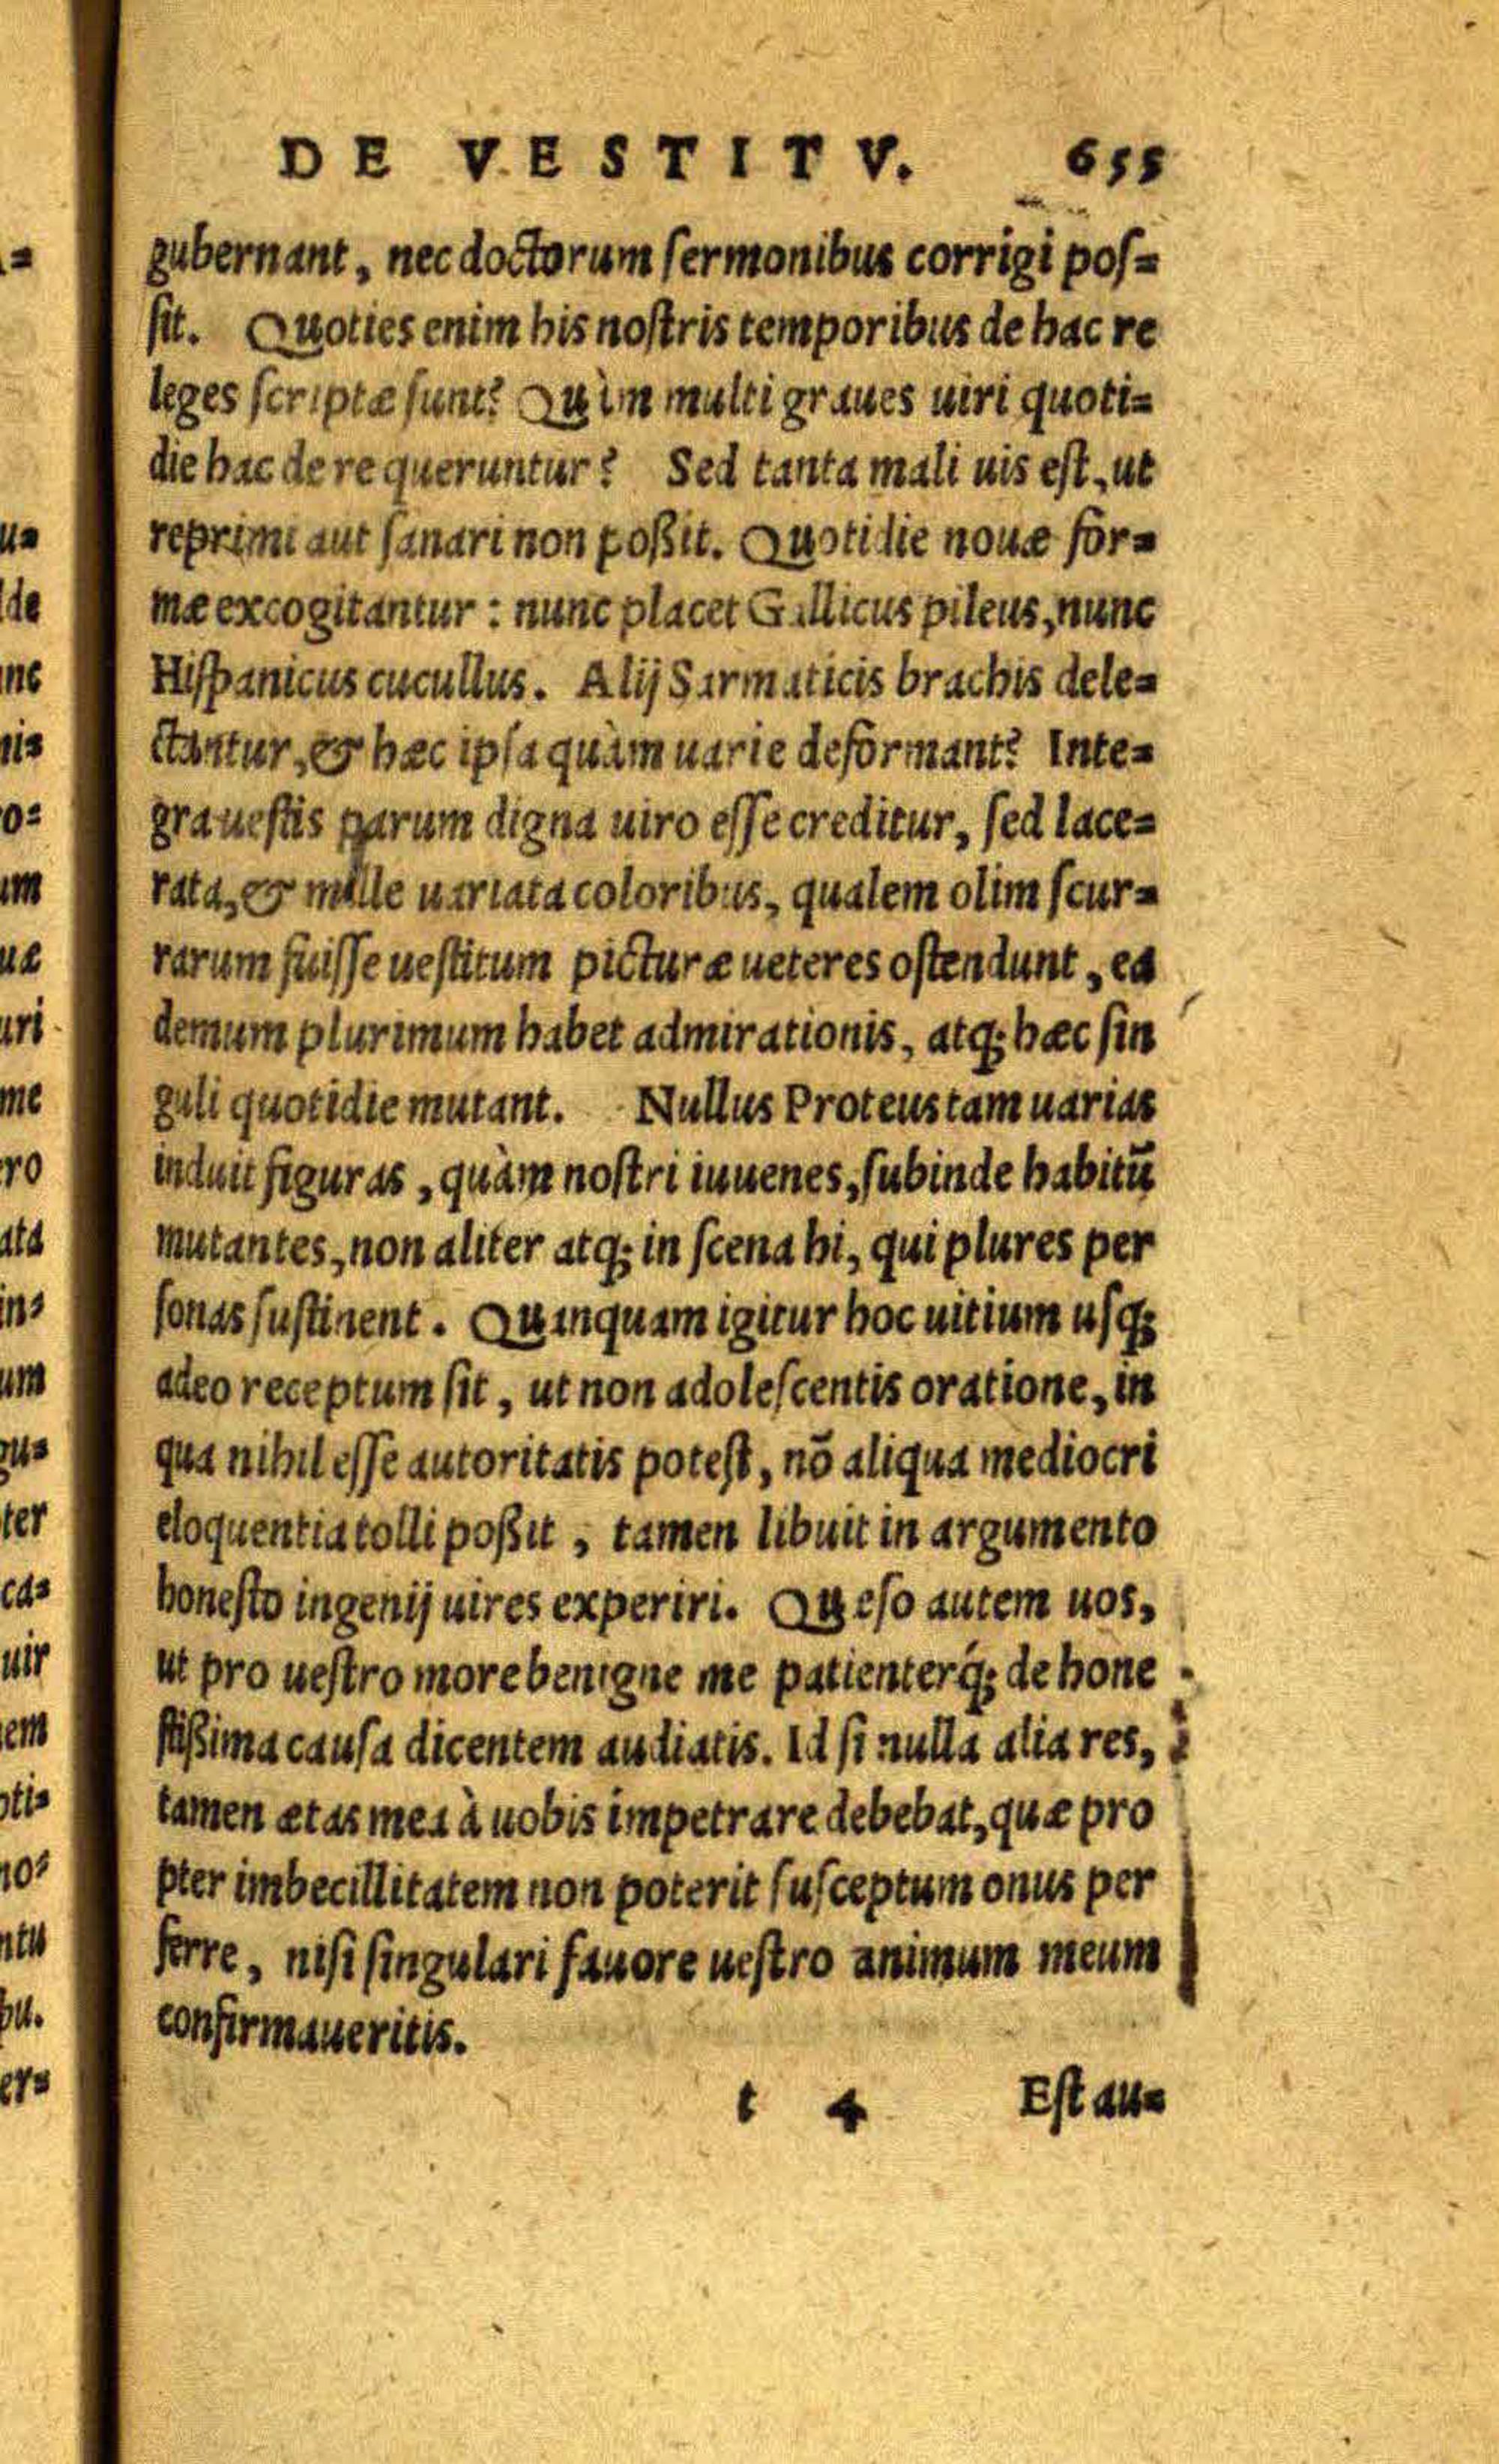 DE VESTITV. 655
gubernant, nec doctorum ſermonibus corrigi poſ=
ſit. Quoties enim his noſtris temporibus de hac re
leges ſcriptæ ſunt? Quàm multi graues uiri quoti=
die hac de re queruntur? Sed tanta mali uis eſt, ut
reprimi aut ſanari non poßit. Quotidie nouæ for=
mæ excogitantur: nunc placet Gallicus pileus, nunc
Hiſpanicus cucullus. Alij Sarmaticis brachis dele=
ctantur, & hæc ipſa quàm uarie deformant? Inte=
gra ueſtis parum digna uiro eſſe creditur, ſed lace=
rata, & mille uariata coloribus, qualem olim ſcur=
rarum fuiſſe ueſtitum picturæ ueteres oſtendunt, ea
demum plurimum habet admirationis, atq; hæc ſin
guli quotidie mutant. Nullus Proteus tam uarias
induit figuras, quàm noſtri iuuenes, ſubinde habitū
mutantes, non aliter atq; in ſcena hi, qui plures per
ſonas ſuſtinent. Quanquam igitur hoc uitium uſq;
adeo receptum ſit, ut non adoleſcentis oratione, in
qua nihil eſſe autoritatis poteſt, nō aliqua mediocri
eloquentia tolli poßit, tamen libuit in argumento
honeſto ingenij uires experiri. Queſo autem uos,
ut pro ueſtro more benigne me patienterq́; de hone
ſtißima cauſa dicentem audiatis. Id ſi nulla alia res,
tamen ætas mea à uobis impetrare debebat, quæ pro
pter imbecillitatem non poterit ſuſceptum onus per
ferre, niſi ſingulari fauore ueſtro animum meum
confirmaueritis.
t 4 Eſt au=